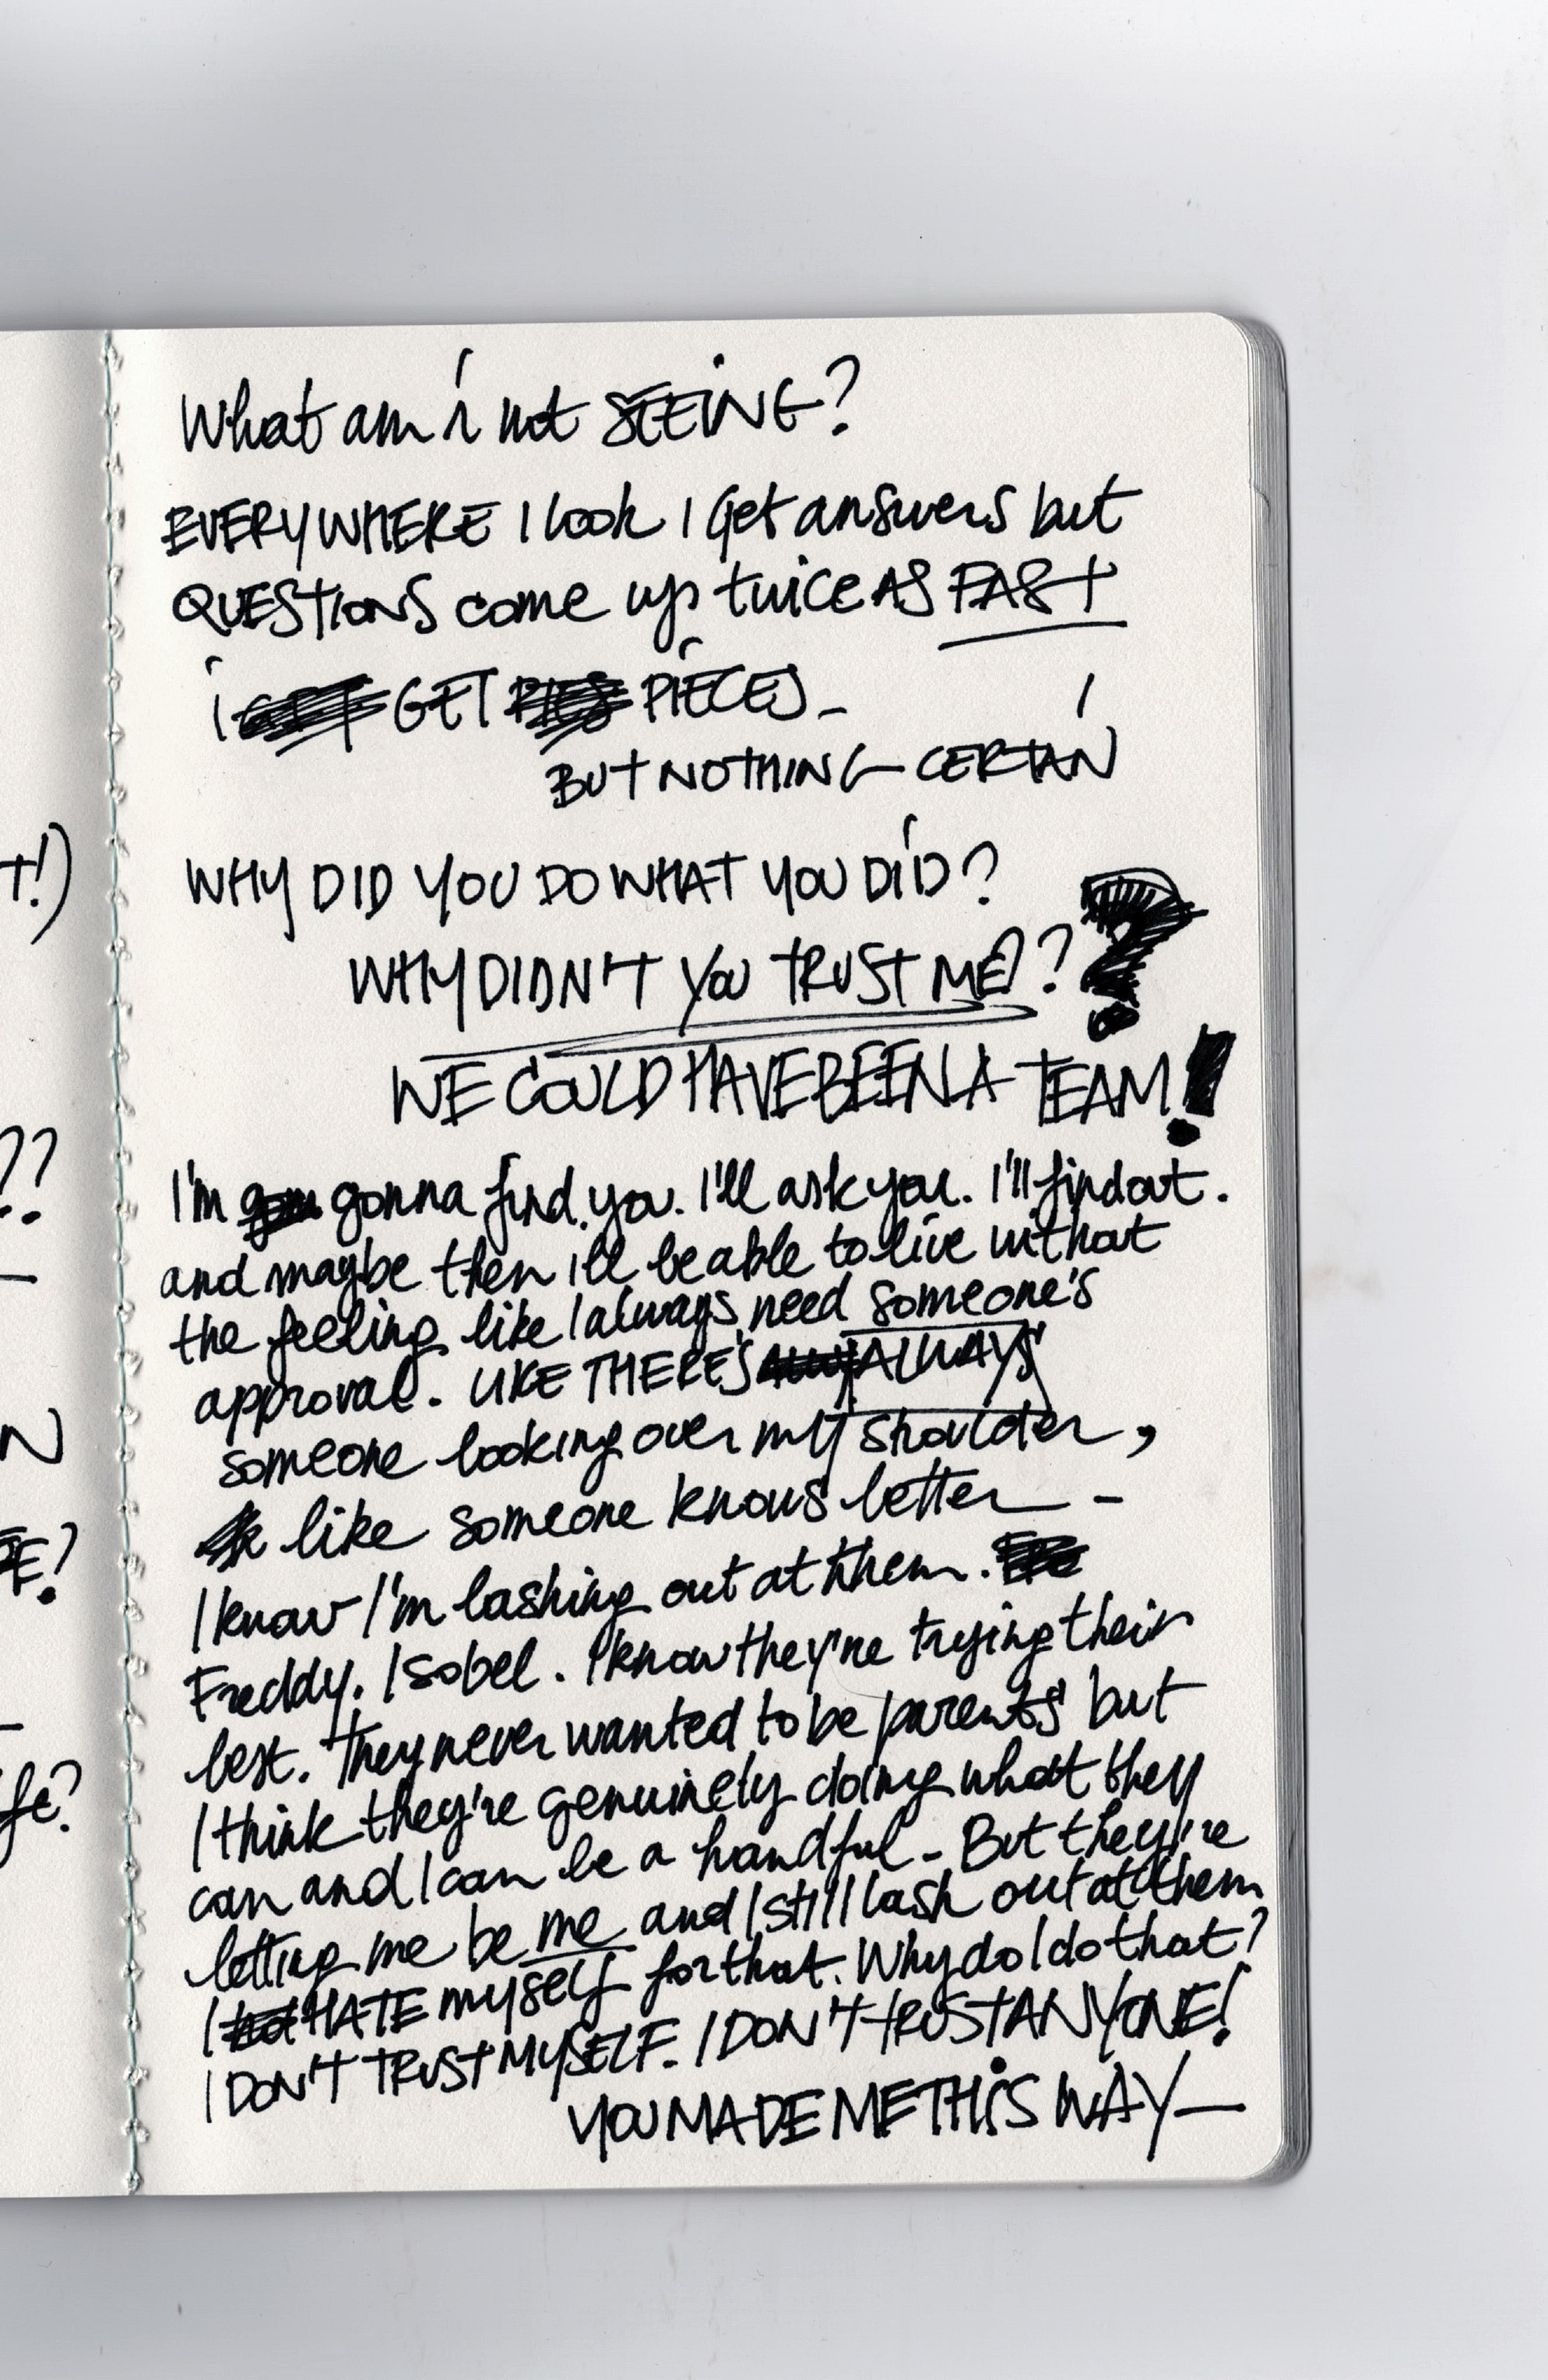 What am i not SEEING?
EVERYWHERE I look I Get answers but
QUESTIONS come up twice AS FAST
i GET PIECES_
BUT NOTHING CERTAIN
WHY DID YOU DO WHAT YOU DID?
WHY DIDN'T YOU TRUST ME???
WE COULD HAVE BEEN A TEAM!
I'm gonna find you. I'll ask you. I'll find out.
and maybe then i'll be able to live without
the feeling like I always need someone's
approval. LIKE THERE'S ALWAYS
someone looking over my shoulder,
like someone knows better –
I know I'm lashing out at them.
Freddy. Isobel. I know they're trying their
best. They never wanted to be parents but
I think they're genuinely doing what they
can and I can be a handful – But they're
letting me be me and I still lash out at them
for that. Why do I do that?
I HATE myself
I DON'T TRUST MYSELF. I DON'T TRUST ANYONE!
YOU MADE ME THIS WAY—
T!)
??
N
E?
fe?